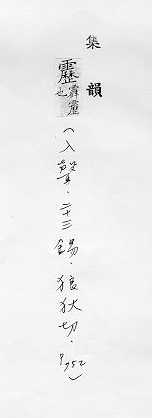 集韻
靂霹靂也
（入聲．二十三錫．狼狄切．P752）